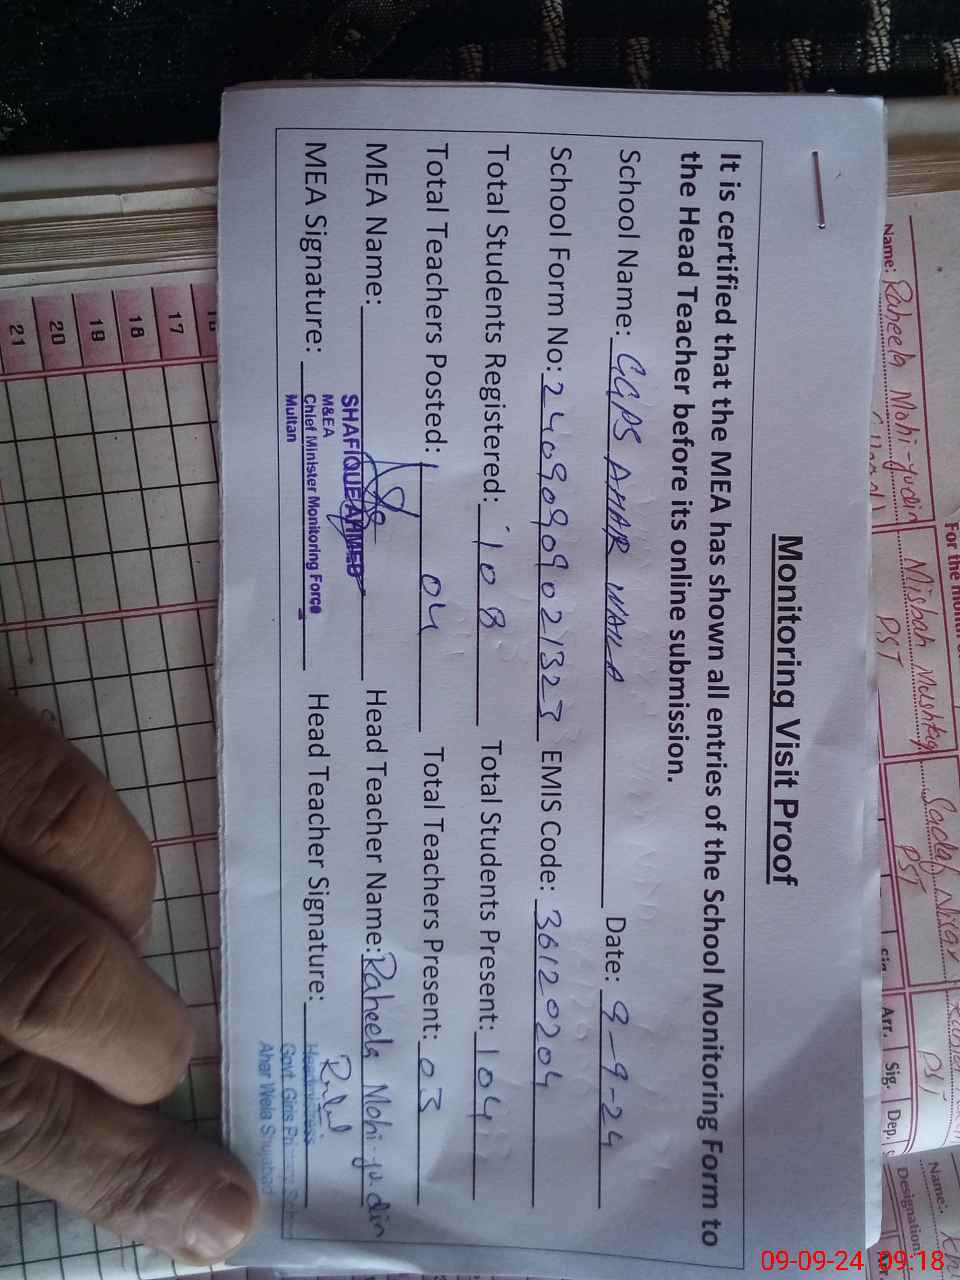 Monitoring Visit Proof
It is certified that the MEA has shown all entries of the School Monitoring Form to
the Head Teacher before its online submission.
School Name: GGPS AHAR WALA Date: 9-9-24
School Form No: 24090909021323 EMIS Code: 36120204
Total Students Registered: 108 Total Students Present: 104
Total Teachers Posted: 04 Total Teachers Present: 03
MEA Name: SHAFIQUE AHMED Head Teacher Name: Raheela Mohi-yu-din
M&EA
MEA Signature: Chief Minister Monitoring Force Head Teacher Signature:
Multan
Headmistress
Govt. Girls Primary School
Ahar Wala Shujabad
For the month
Name: Raheela Mohi-yudin Misbah Mushtaq Sadaf
PST PST PST
Sig. Arr. Sig. Dep.
Name:
Designation
16
17
18
19
20
21
09-09-24 09:18